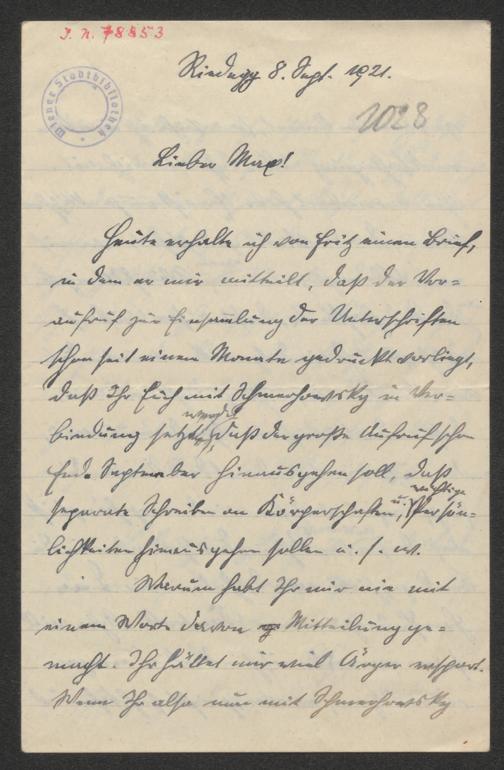 J. N. 78853
Wiener Stadtbibliothek
Riedegg 8. Sept. 1921.
1028
Lieber Max!
Heute erhalte ich von Fritz einen Brief,
in dem er mir mitteilt, daß der Vor=
aufruf zur Einsammlung der Unterschriften
schon seit einem Monate gedruckt vorliegt,
daß Ihr Euch mit Schmerhowsky in Ver=
bindung setzt, daß der große Aufruf schon
Ende September hinausgehen soll, daß
wichtige
separate Schreiben an Körperschaften, u. Persön=
lichkeiten hinausgehen sollen u. s. w.
Warum habt Ihr mir nie mit
einem Worte davon Mitteilung ge=
macht. Ihr hättet mir viel Ärger erspart.
Wenn Ihr also nun mit Schmerhowsky